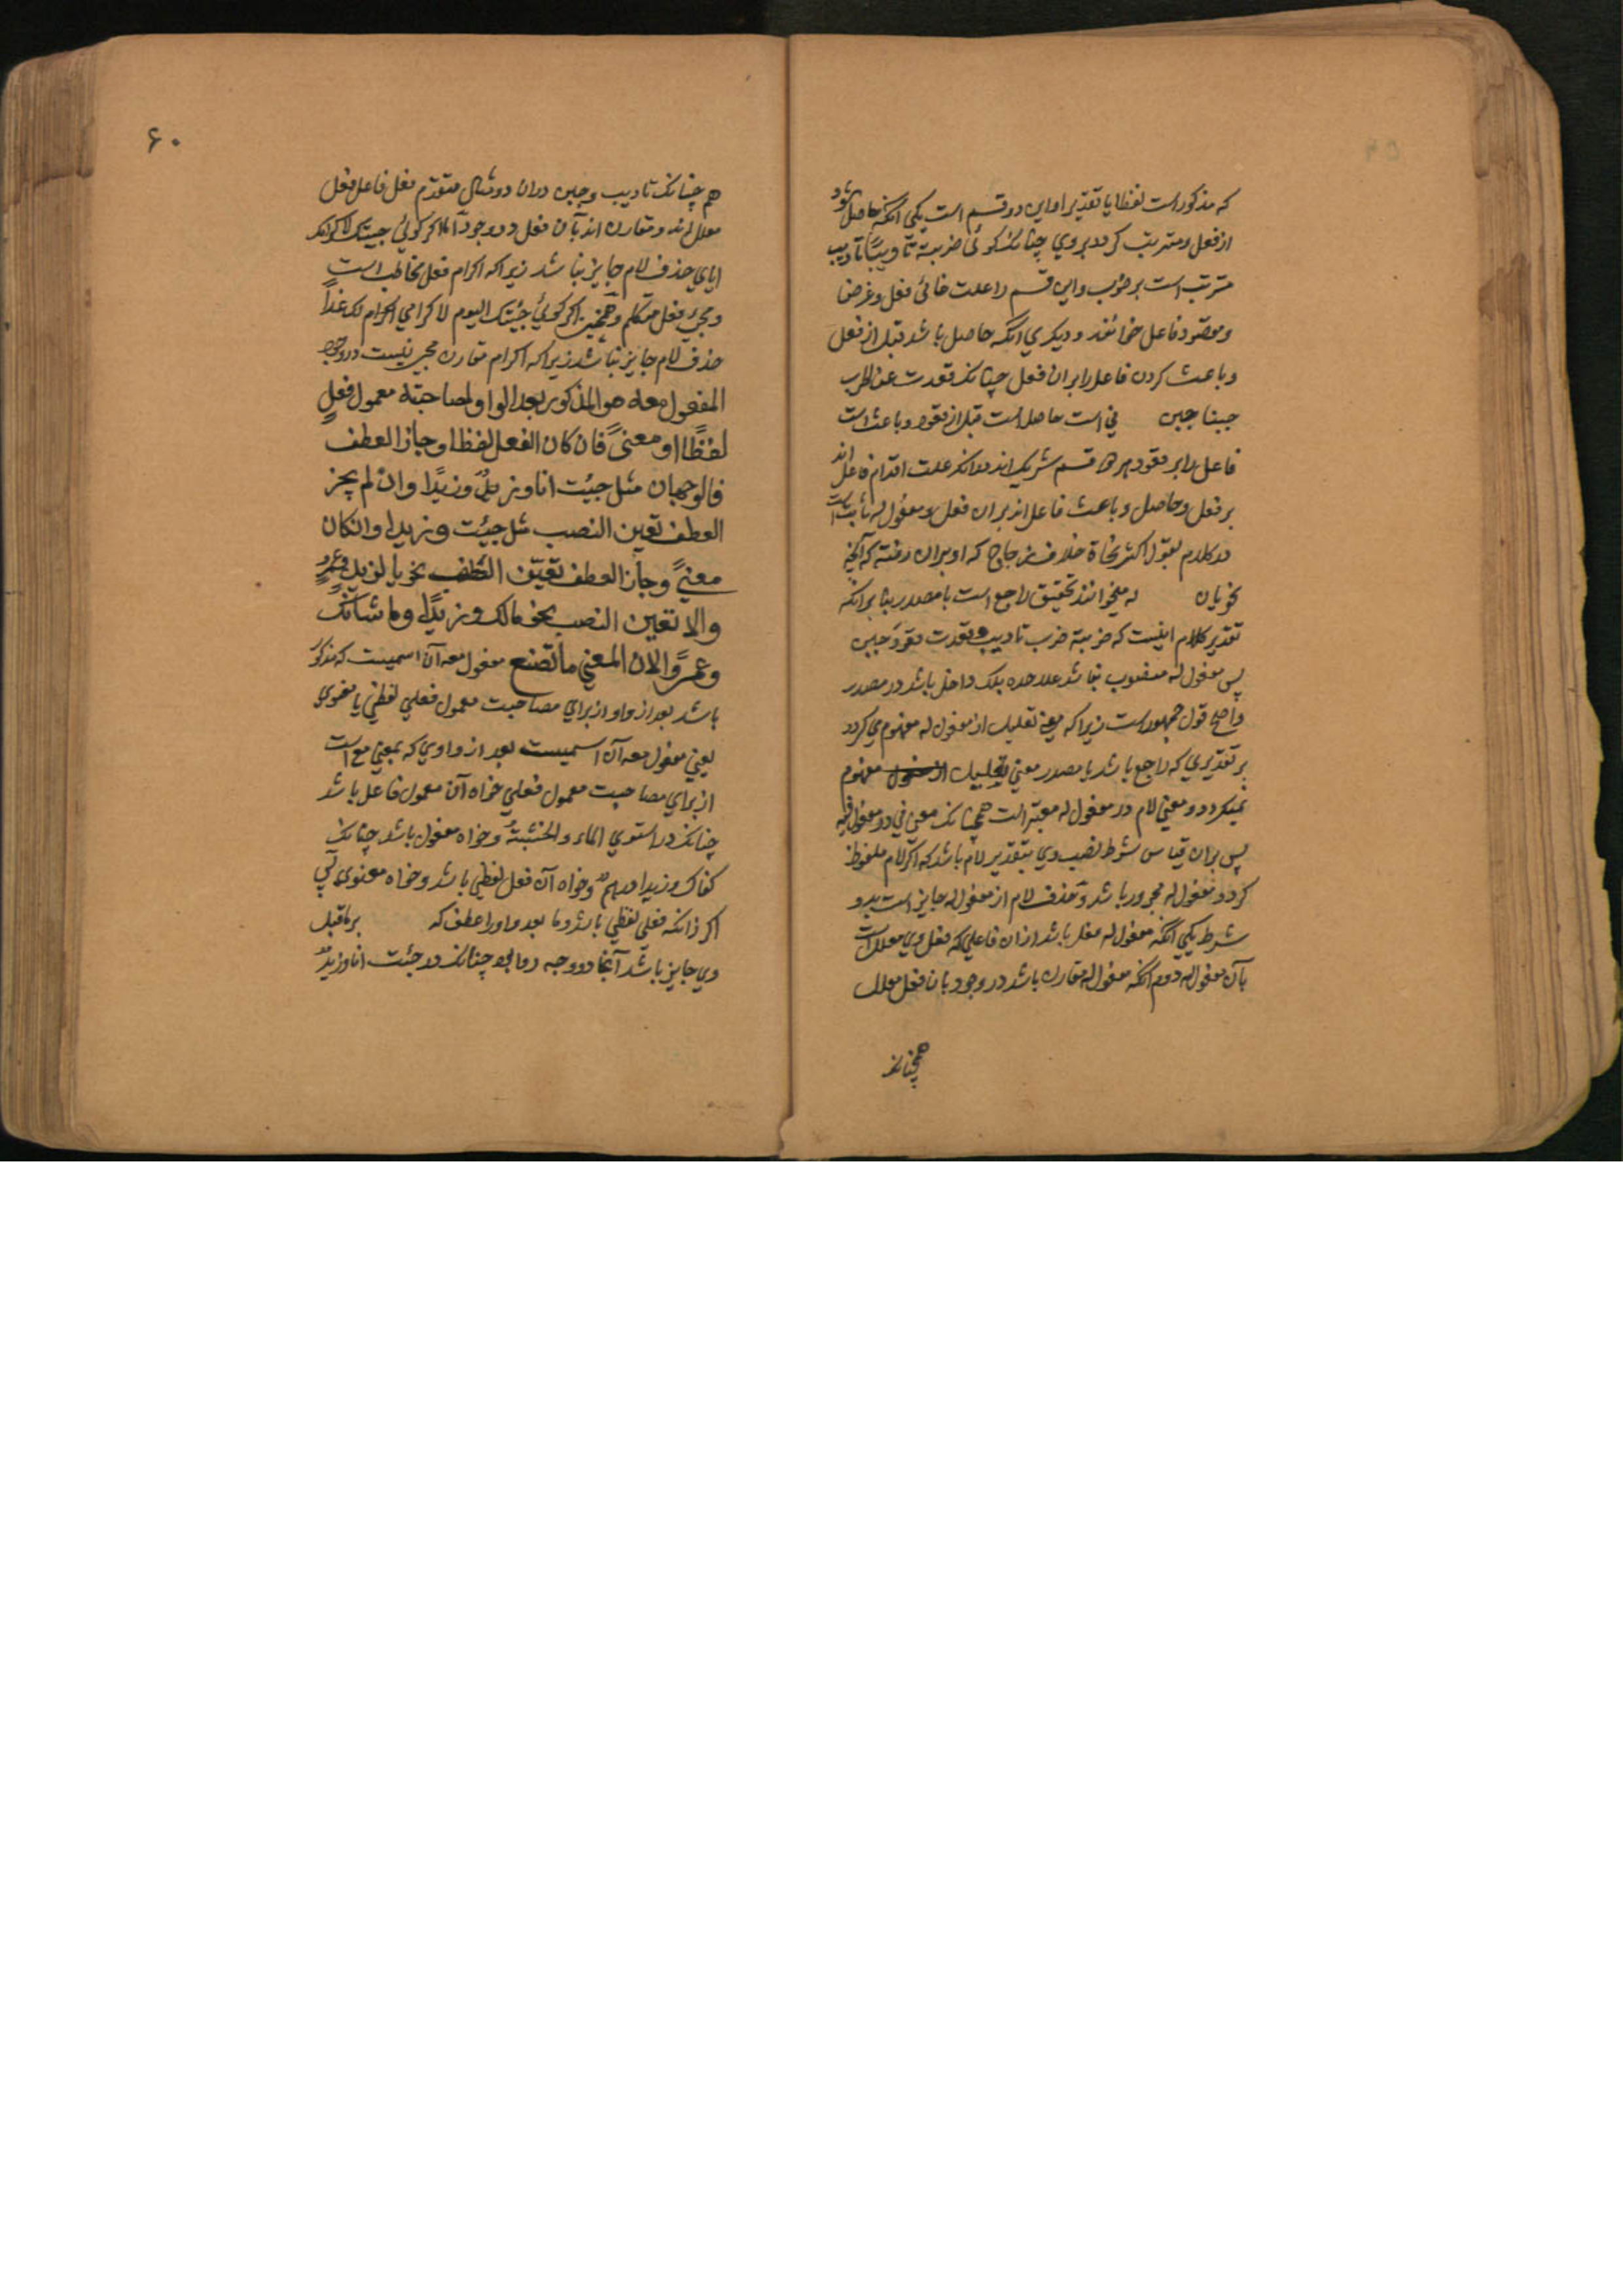 که مذکور است لفظا یا تقدیرا و این دو قسم است یکی آنکه حاصل شود
از فعل و مترتب گردد بروی چنانک گوئی ضربته تادیبًا تادیب
مترتب است بر ضرب و این قسم را علت غائی فعل و غرض
و مقصود فاعل خوانند و دیگری آنکه حاصل باشد قبل از فعل
و باعث کردن فاعل را بران فعل چنانک قعدت عن الحرب
جبنا جبن فی است حاصل است قبل از قعود و باعث است
فاعل را بر قعود هر دو قسم شریک اند در آنکه علت اقدام فاعل اند
بر فعل و حاصل و باعث فاعل اند بران فعل و مفعول له ثابت است
در کلام بقول اکثر نحاة خلاف زجاج که او بران رفته که آنچه
نحویان له میخوانند تحقیق راجع است با مصدر بنا برانکه
تقدیر کلام اینست که ضربته ضرب تادیب و قعدت قعود جبن
پس مفعول له منصوب نباشد علاحده بلک داخل باشد در مصدر
واضح قول جمهور است زیرا که معنی تعلیل از مفعول له مفهوم می گردد
بر تقدیری که راجع باشد با مصدر معنی تعلیل از مفعول مفهوم
نمیگردد و معنی لام در مفعول له معتبر است همچنانک معنی فی در مفعول فیه
پس بران قیاس شرط نصب وی بتقدیر لام باشد که اگر لام ملفوظ
گردد مفعول له مجرور باشد و حذف لام از مفعول له جایز است بدو
شرط یکی آنکه مفعول له فعل باشد از ان فاعلی که فعل وی معلل است
بآن مفعول له دوم آنکه مفعول له مقارن باشد در وجود با ن فعل معلل
همچنانک
۶۰
هم چنانک تادیب و جبن دران دو مثال متقدم فعل فاعل فعل
معلل اند و مقارن اند بآن فعل در وجود اما اگر گوئی جئتک لاکرامک
ایای حذف لام جایز نباشد زیرا که اکرام فعل مخاطب است
و مجئ فعل متکلم و همچنین اگر گوئی جئتک الیوم لاکرامی اکرام لک غداً
حذف لام جایز نباشد زیرا که اکرام مقارن مجئ نیست در وجود
المفعول معه هو المذکور بعد الواو لمصاحبته معمول فعلٍ
لفظًا او معنیً فان کان الفعل لفظا و جاز العطف
فالوجهان مثل جئت انا و زیدٌ و زیدًا وان لم یجز
العطف تعین النصب مثل جئت و زیدا وان کان
معنیً وجاز العطف تعیّن العطف نحو ما لزید و عمرو
والا تعین النصب نحو مالک و زیدًا و ما شانک
وعمرًوا لان المعنی ما تصنع مفعول معه آن اسمیست که مذکور
باشد بعد از واو از برای مصاحبت معمول فعلی لفظی یا معنوی
یعنی مفعول معه آن اسمیست بعد از واوی که بمعنی مع است
از برای مصاحبت معمول فعلی خواه آن معمول فاعل باشد
چنانک در استوی الماء والخشبةَ و خواه مفعول باشد چنانک
کفاک و زیدا درهم و خواه آن فعل لفظی باشد و خواه معنوی پس
اگر زانکه فعلی لفظی باشد و ما بعد واو را عطف که بر ماقبل
وی جایز باشد آنجا دو وجه روا بود چنانک در جئت انا و زیدٌ